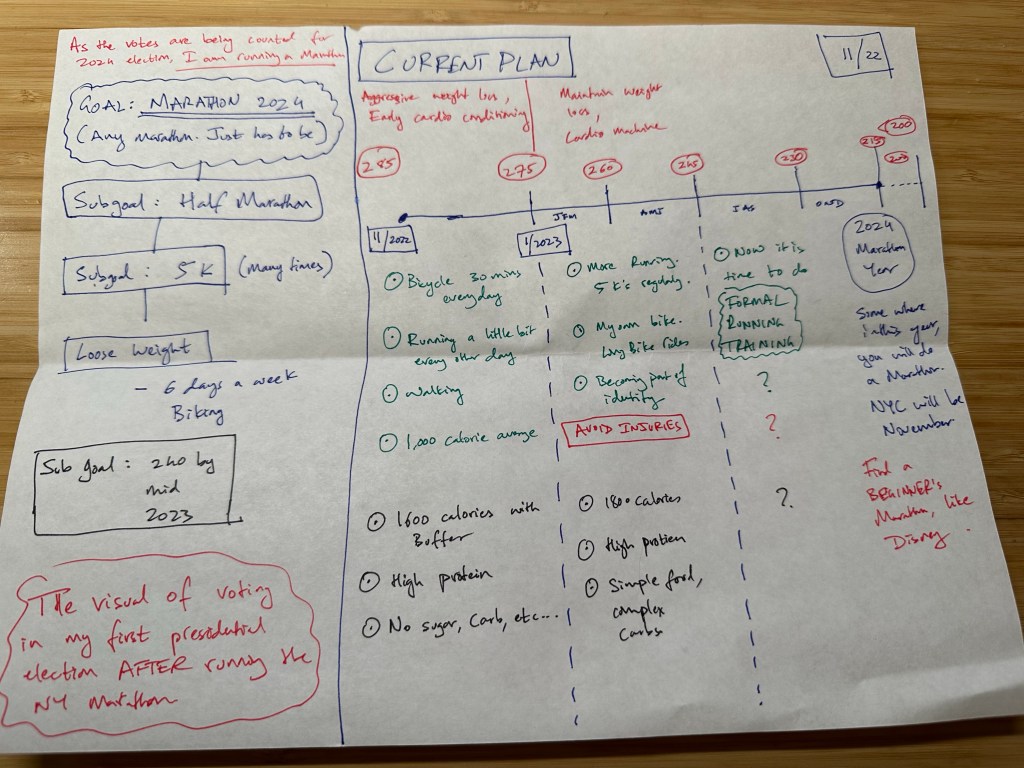 As the votes are being counted for
2024 election, I am running a Marathon
GOAL: MARATHON 2024
(Any marathon. Just has to be)
Subgoal: Half Marathon
Subgoal: 5K (Many times)
Loose Weight
- 6 days a week
Biking
Sub goal: 240 by
mid
2023
The visual of voting
in my first presidential
election AFTER running the
NY Marathon
CURRENT PLAN
11/22
Aggressive weight loss,
Early cardio conditioning
Maintain weight
loss,
Cardio machine
285
275
260
245
230
215
200
JFM
AMJ
JAS
OND
11/2022
1/2023
2024
Marathon
Year
Bicycle 30 mins
everyday
Running a little bit
every other day
Walking
1,000 calorie average
1600 calories with
Buffer
High protein
No sugar, Carb, etc...
More Running.
5K's regularly.
My own bike.
Long Bike rides
Becoming part of
identity
AVOID INJURIES
1800 calories
High protien
Simple food,
complex
Carbs
Now it is
time to do
FORMAL
RUNNING
TRAINING
?
?
?
Some where
in this year,
you will do
a Marathon.
NYC will be
November
Find a
BEGINNER'S
Marathon, like
Disney.